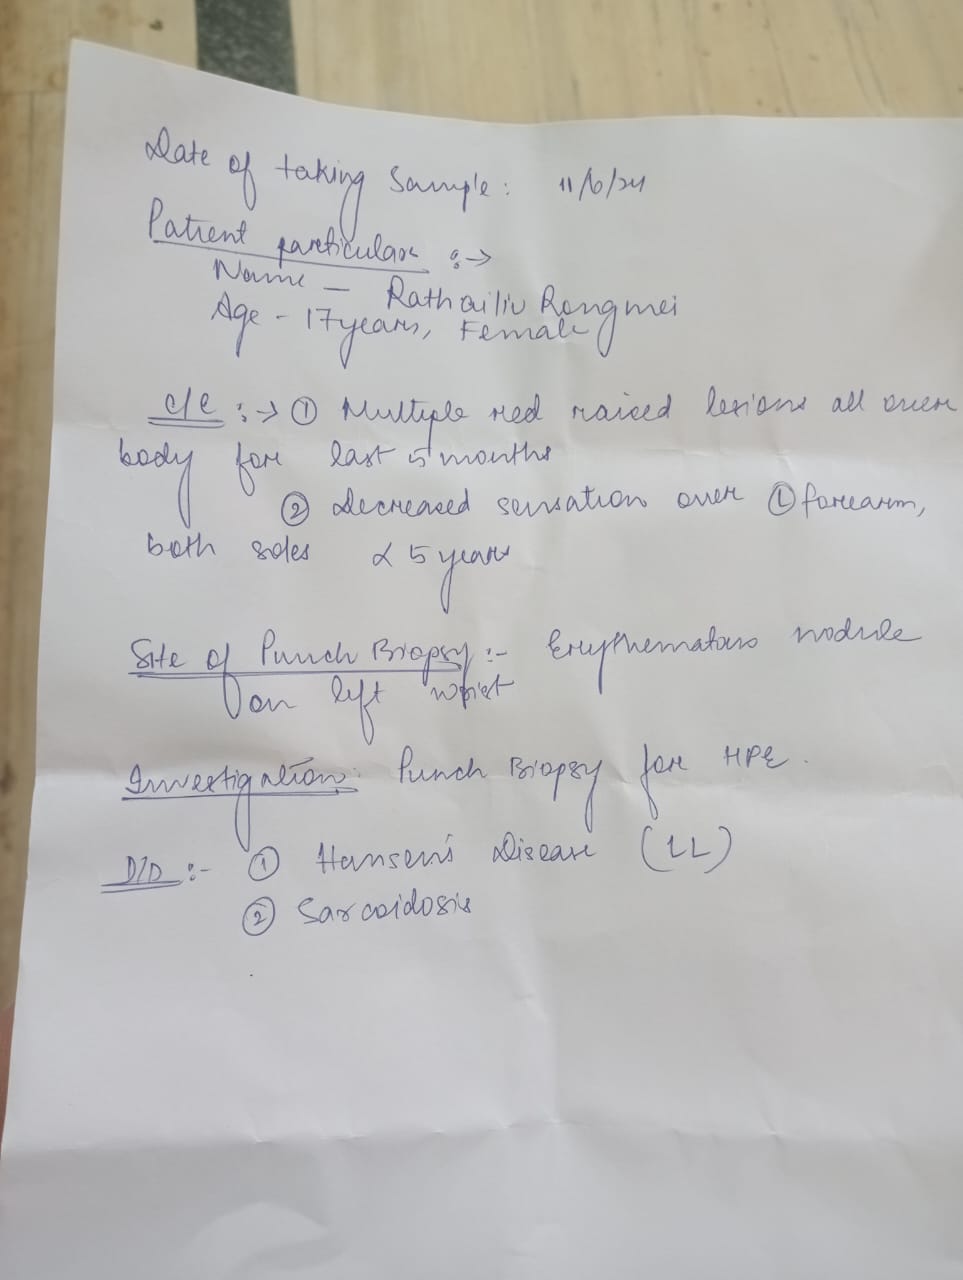 Date of taking Sample: 11/6/24
Patient particulars :→
Name – Rathailiu Rongmei
Age - 17 years, Female
c/c :→ ① Multiple red raised lesions all over
body for last 5 months
② Decreased sensation over Ⓛ forearm,
both soles α 5 years
Site of Punch Biopsy :- Erythematous nodule
on left wrist
Investigation: Punch Biopsy for HPE.
D/D :- ① Hansen's Disease (LL)
② Sarcoidosis